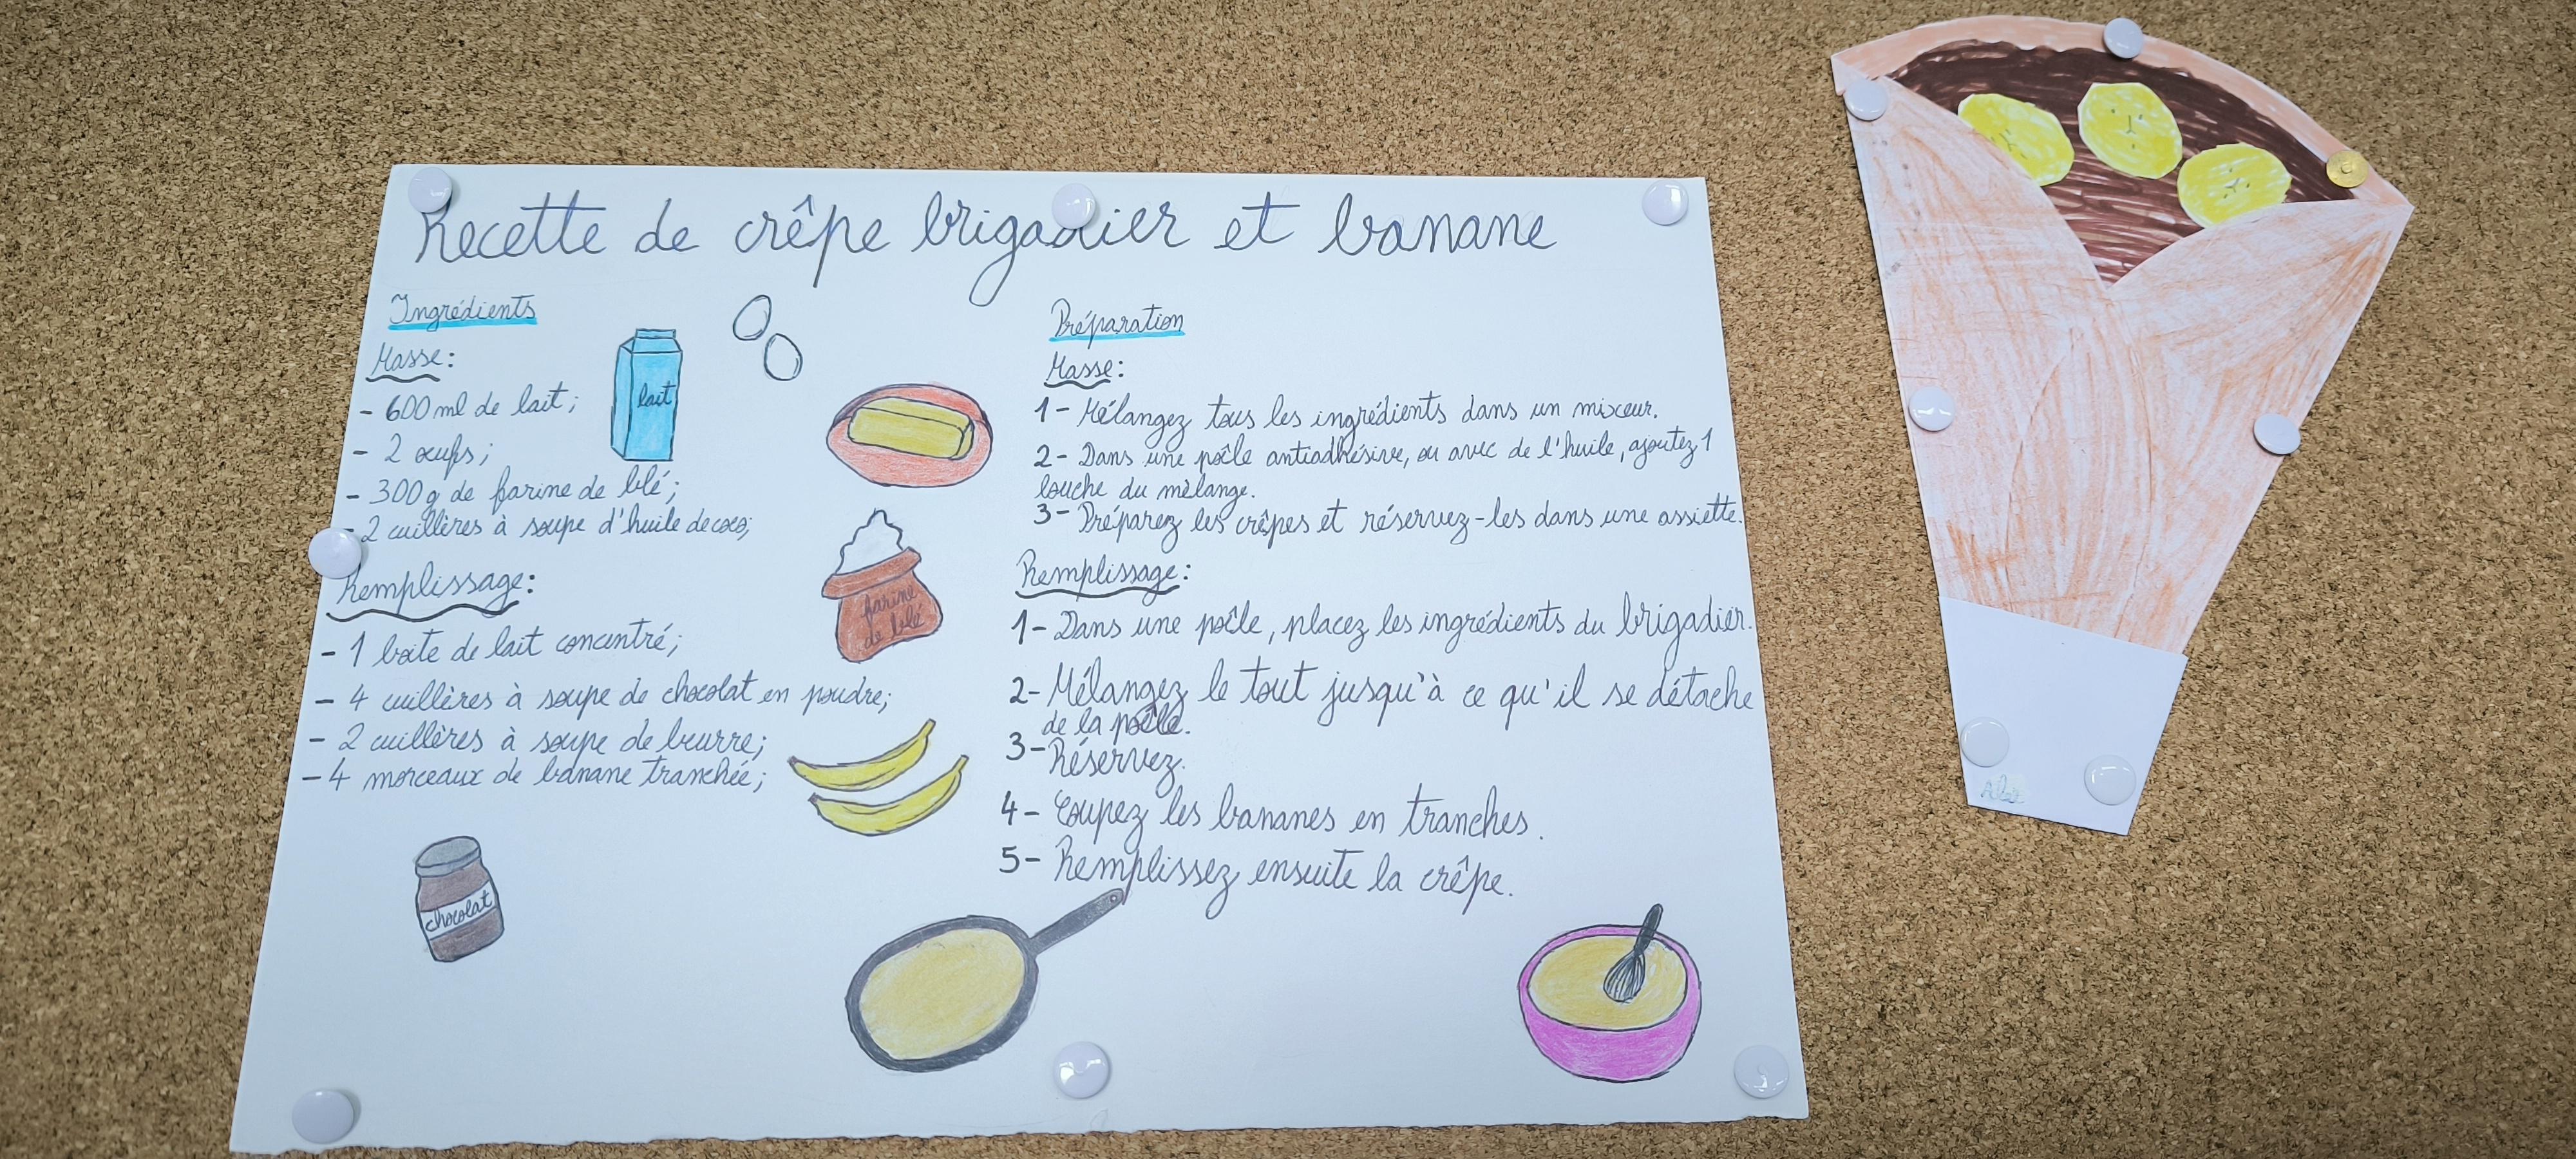 Recette de crêpe brigadier et banane
Ingrédients
Masse:
- 600 ml de lait;
- 2 œufs;
- 300 g de farine de blé;
- 2 cuillères à soupe d'huile de coco;
Remplissage:
- 1 boite de lait concentré;
- 4 cuillères à soupe de chocolat en poudre;
- 2 cuillères à soupe de beurre;
- 4 morceaux de banane tranchée;
lait
farine
de blé
chocolat
Préparation
Masse:
1- Mélangez tous les ingrédients dans un mixeur.
2- Dans une poêle antiadhésive, ou avec de l'huile, ajoutez 1
louche du mélange.
3- Préparez les crêpes et réservez-les dans une assiette.
Remplissage:
1- Dans une poêle, placez les ingrédients du brigadier.
2- Mélangez le tout jusqu'à ce qu'il se détache
de la poêle.
3- Réservez.
4- Coupez les bananes en tranches.
5- Remplissez ensuite la crêpe.